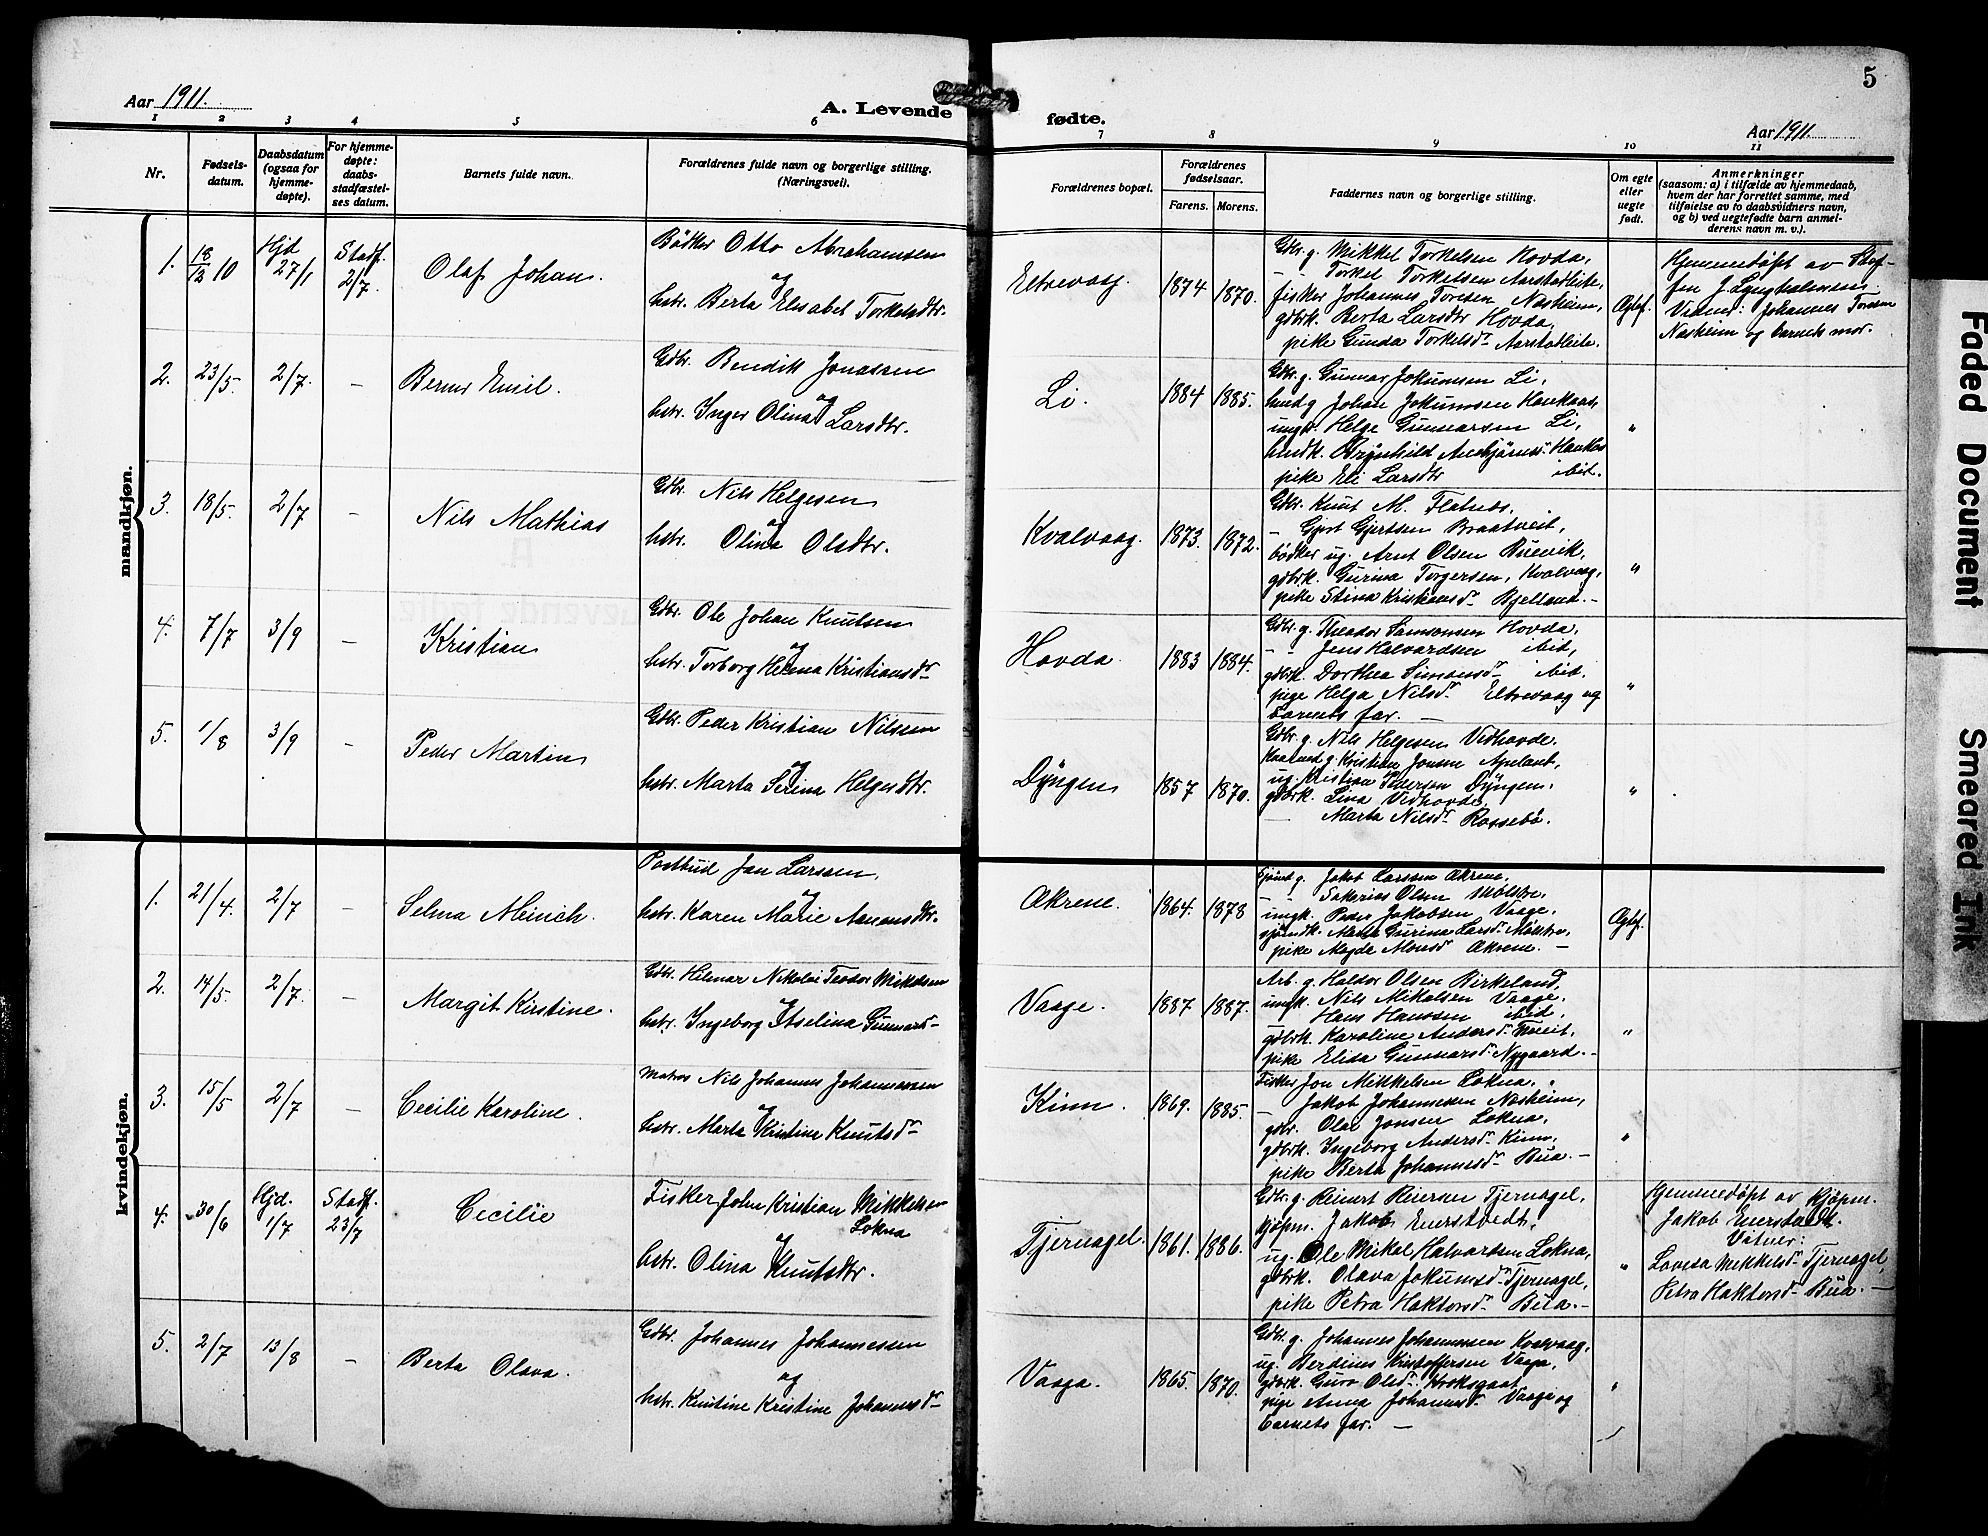 5
Aar 1911.
A. Levende fødte.
Aar 1911.
1 2 3 4 5 6 7 8 9 10 11
Nr.
Fødsels-
datum.
Daabsdatum
(ogsaa for
hjemme-
døpte).
For hjemme-
døpte:
daabs-
stadfæstel-
ses datum.
Barnets fulde navn.
Forældrenes fulde navn og borgerlige stilling.
(Næringsvei).
Forældrenes bopæl.
Forældrenes
fødselsaar.
Farens. Morens.
Faddernes navn og borgerlige stilling.
Om egte
eller
uegte
født.
Anmerkninger
(saasom: a) i tilfælde av hjemmedaab,
hvem der har forrettet samme, med
tilføielse av to daabsvidners navn,
og b) ved uegtefødte barn anmel-
derens navn m. v.).
mandkjøn.
1. 18/12 10 Hjd. 27/1 Stadf. 2/7. Olaf Johan.
Bödker Otto Abrahamsen
og
hstr. Berta Elisabet Torkelsdtr.
Eltrevaag. 1874 1870.
Gdbr. g. Mikkel Torkelsen Hovda,
- - Torkel Torkelsen Aarstadleite,
fisker Johannes Toresen Nasheim,
gdbrk. Berta Larsdtr Hovda,
pike Gunda Torkelsdr Aarstadleite.
Ægtef.
Hjemmedöpt av Stef-
fen J. Lyngholmen.
Vidner: Johannes Toresen
Nasheim og barnets mor.
2. 23/5. 2/7. - Berner Emil.
Gdbr. Bendik Jonassen
og
hstr. Inger Olina Larsdtr.
Li. 1884 1885.
Gdbr. g. Gunnar Jokumsen Li,
husm. g. Johan Jokumsen Haukaas,
ungk. Helge Gunnarsen Li,
Brynhild
pike Eli Larsdtr ibid.
"
3. 18/5. 2/7 - Nils Mathias
Gdbr. Nils Helgesen
og
hstr. Olina Olsdtr.
Kvalvaag. 1873. 1872.
Gdbr. Knut M. Flatnes.
- Gjert Gjertsen Braatveit,
bödker ug. Arnt Olsen Buevik,
gdbrk. Gurina Torgersen, Kvalvaag,
pike Stina Kristiansdr Bjelland. -
"
4. 7/7 3/9 - Kristian
Gdbr. Ole Johan Knutsen
og
hstr. Torborg Helena Kristiansdr
Hovda. 1883 1884.
Gdbr. g. Theodor Samsonsen Hovda,
- - Jens Halvardsen ibid,
gdbrk. Dorthea Simonsdr ibid.
pige Helga Nilsdr Eltrevaag og
barnets far. -
"
5. 1/8 3/9 - Peder Martin
Gdbr. Peder Kristian Nilssen
og
hstr. Marta Serina Helgesdtr.
Dyngen 1857 1870.
Gdbr. g. Nils Helgesen Vedhovde.
Kristian Jonsen Apeland,
ug. Kristian Pedersen Dyngen,
gdbrk. Lina Vedhovde,
- Marta Nilsdr Rossebö.
"
kvindekjøn.
1. 21/4. 2/7 - Selma Meinich.
Postbud Jan Larssen
og
hstr. Karen Marie Aanonsdtr.
Økrene. 1864. 1878
Jakob Larssen Økrene,
- - Sakarias Olsen
ungk. Peder Jakobsen Vaage,
Marta Gurina Larsdr
pike Magda Monsdr Økrene. -
Ægtef.
2. 14/5. 2/7. - Margit Kirstine.
Gdbr. Hilmar Nikolai Teodor Mikkelsen
og
hstr. Ingeborg Itselina Gunnarsdr
Vaage. 1887. 1887.
Arb. g. Haldor Olsen Birkeland,
ungk. Nils Mikalsen Vaage,
Hans Hanssen ibid.
gdbrk. Karoline Andersdr Tveit,
pike Elida Gunnarsdr Nygaard. -
"
3. 15/5 2/7 - Cecilie Karoline.
Matros Nils Johannes Johannessen
og
hstr. Marta Kristina Knutsdr
Kinn. 1869. 1885.
Fisker Jon Mikkelsen Lokna.
- Jakob Johannesen Nasheim,
gdbr. Olai Jonsen Lokna,
gdbrk. Ingeborg Andersdr Kinn,
pike Berta Johannesdr Bua. -
"
4. 30/6 Hjd. 1/7 Stadf. 23/7 Cecilie
Fisker John Kristian Mikkelsen
Lokna
og
hstr. Olina Knutsdtr.
Tjernagel. 1861. 1886.
Gdbr. g. Reinert Reiersen Tjernagel,
kjöpm. Jakob Enerstvedt,
ug. Ole Mikal Halvardsen Lokna,
gdbrk. Olava Jokumsdr Tjernagel,
pike Petra Haktorsdr Bua. -
"
Hjemmedöpt av Kjöpm.
Jakob Enerstvedt.
Vitner:
Lovisa Mikkelsdr Tjernagel,
Petra Haktorsdr Bua. -
5. 2/7 13/8 - Berta Olava.
Gdbr. Johannes Johannessen
og
hstr. Knutine Kristine Johannesdr
Vaage. 1865. 1870.
Gdbr. g. Johannes Johannessen Kvalvaag,
ug. Berdines Kristoffersen Vaage,
gdbrk. Guro Olsdr Kroksgaat,
pige Anna Johannesdr Vaage og
barnets far. -
"
Faded Document
Smeared Ink